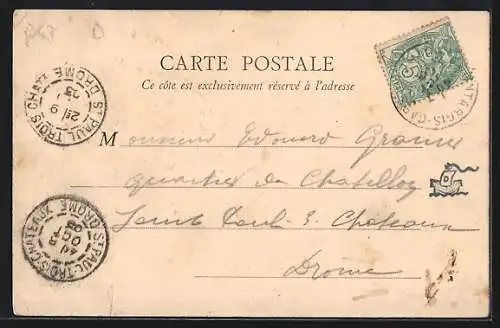 CARTE POSTALE
Ce côté est exclusivement réservé à l'adresse
Monsieur Edouard
quartier du Chatillon
Saint Paul 3 Chateaux
Drome
ST PAUL-TROIS-CHATX
DROME
ST PAUL-TROIS-CHATEAUX
DROME